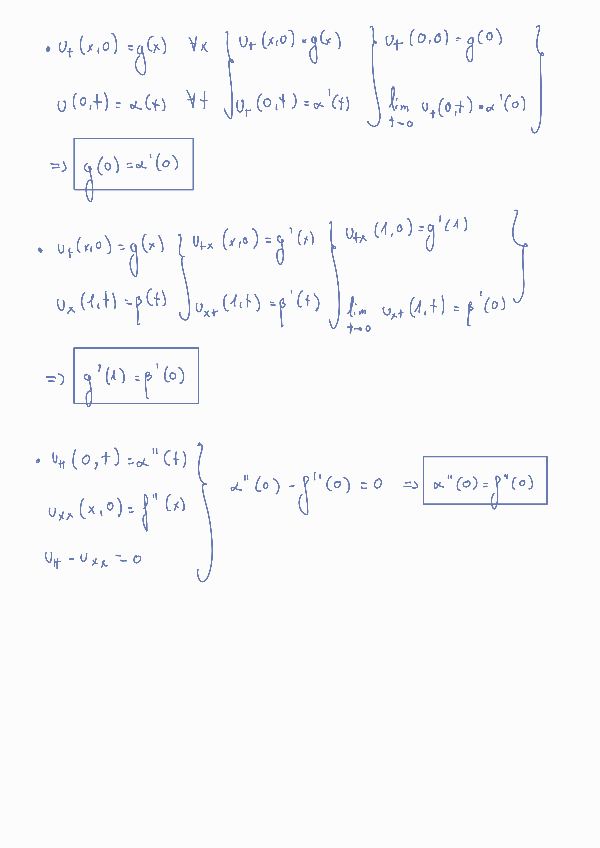 • u_t(x,0) = g(x) ∀x } u_t(x,0) = g(x) } u_t(0,0) = g(0) }
u(0,t) = α(t) ∀t } u_t(0,t) = α'(t) } lim_{t→0} u_t(0,t) = α'(0) }
=> g(0) = α'(0)
• u_t(x,0) = g(x) } u_tx(x,0) = g'(x) } u_tx(1,0) = g'(1) }
u_x(1,t) = β(t) } u_xt(1,t) = β'(t) } lim_{t→0} u_xt(1,t) = β'(0) }
=> g'(1) = β'(0)
• u_tt(0,t) = α''(t) }
u_xx(x,0) = f''(x) } α''(0) - f''(0) = 0 => α''(0) = f''(0)
u_tt - u_xx = 0 }